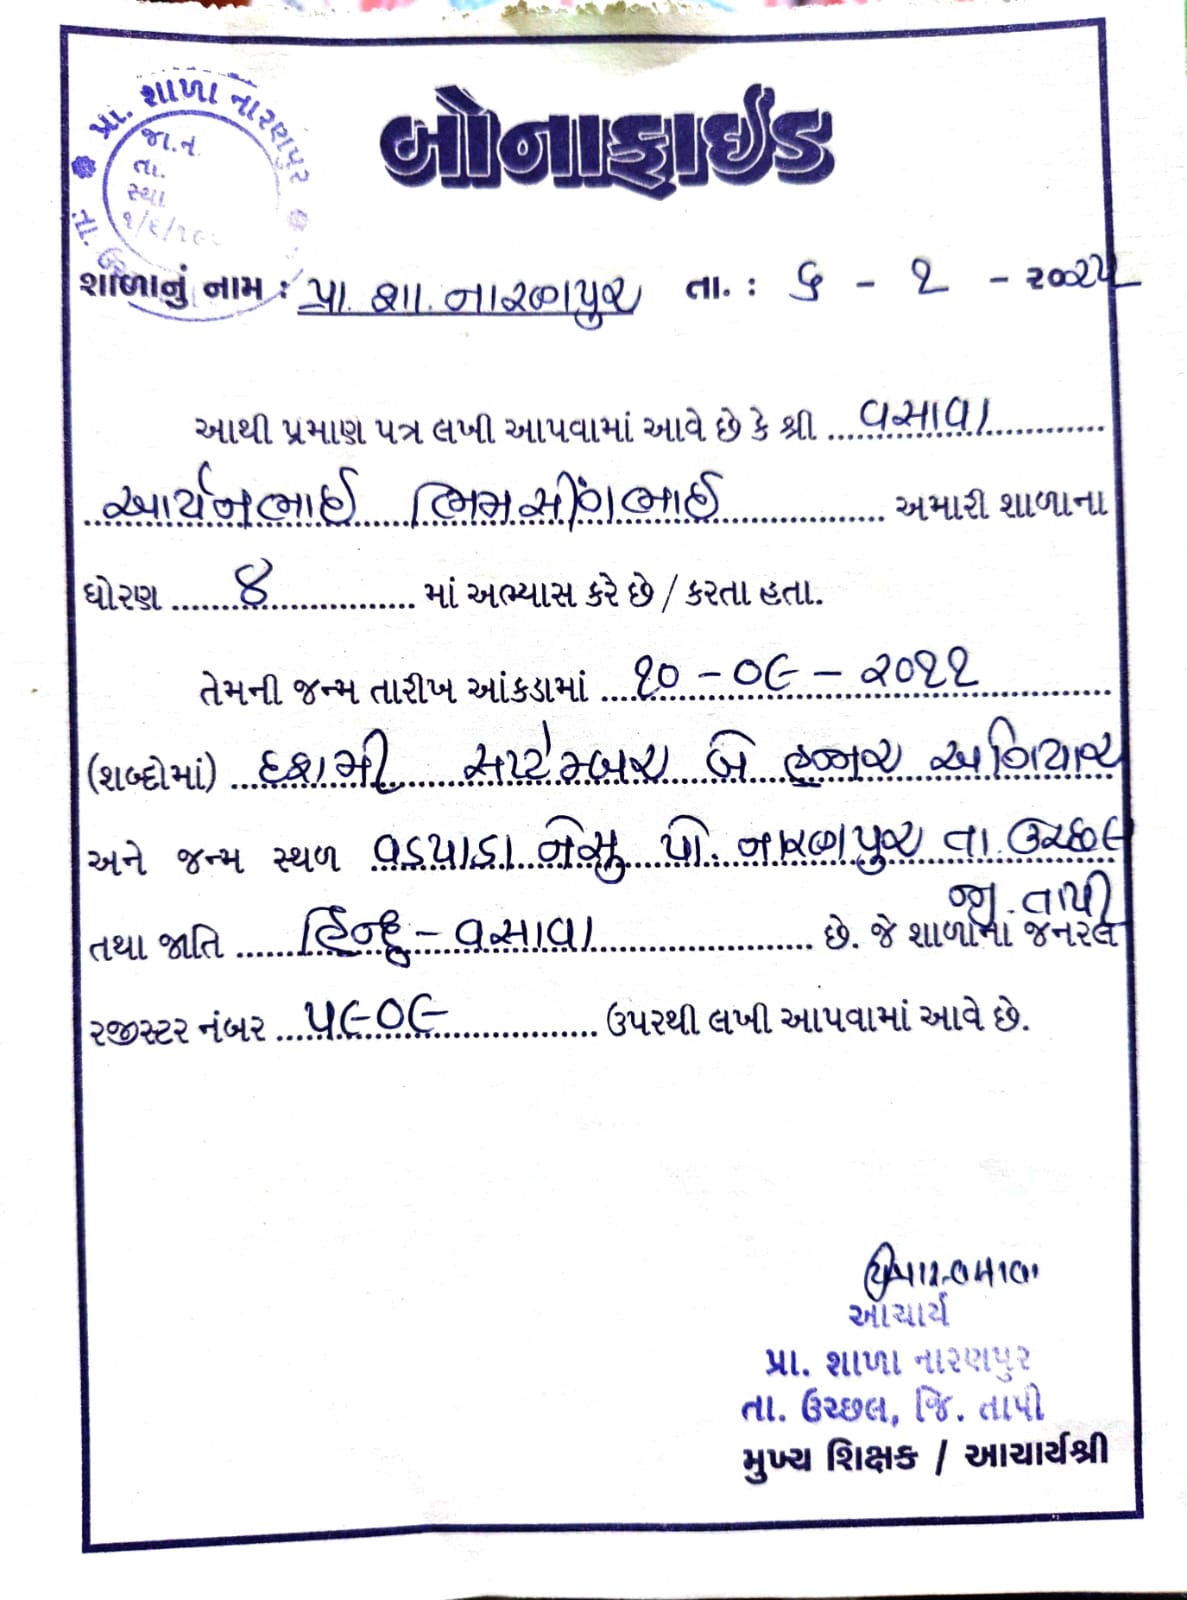 પ્રા. શાળા નારણપુર
જા.નં.
તા.
સ્થા
૧/૬/૧૯
તા. ઉ
બોનાફાઈડ
શાળાનું નામ : પ્રા. શા. નારણપુર તા. : ૬ - ૧ - ૨૦૨૫
આથી પ્રમાણ પત્ર લખી આપવામાં આવે છે કે શ્રી વસાવા
આર્યનભાઈ ભિમસીંગભાઈ અમારી શાળાના
ધોરણ ૪ માં અભ્યાસ કરે છે / કરતા હતા.
તેમની જન્મ તારીખ આંકડામાં ૧૦ - ૦૯ - ૨૦૧૧
(શબ્દોમાં) દશમી સપ્ટેમ્બર બે હજાર અગિયાર
અને જન્મ સ્થળ વડપાડા નેસુ પો. નારણપુર તા. ઉચ્છલ
જી. તાપી
તથા જાતિ હિન્દુ - વસાવા છે. જે શાળાના જનરલ
રજીસ્ટર નંબર ૫૯૦૯ ઉપરથી લખી આપવામાં આવે છે.
આચાર્ય
પ્રા. શાળા નારણપુર
તા. ઉચ્છલ, જિ. તાપી
મુખ્ય શિક્ષક / આચાર્યશ્રી